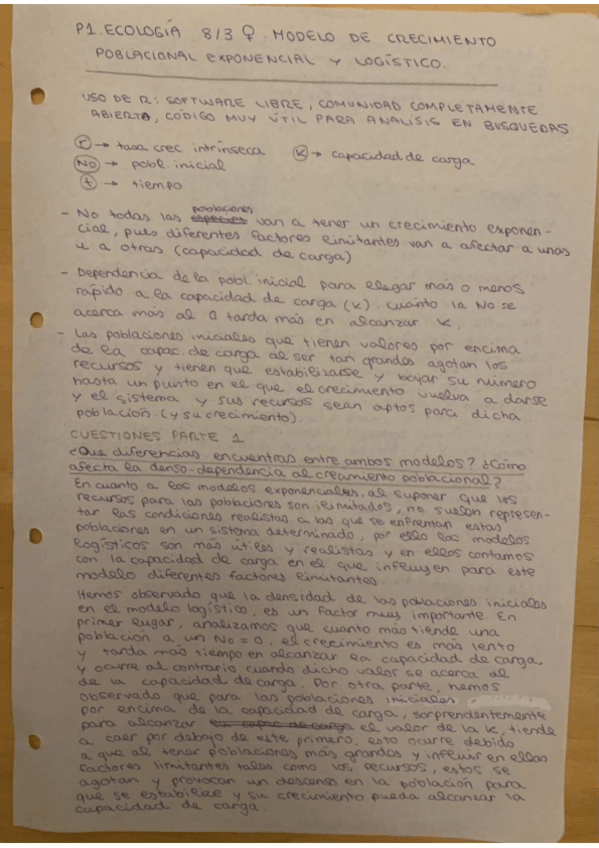 P1. ECOLOGÍA 8/3 ♀ MODELO DE CRECIMIENTO
POBLACIONAL EXPONENCIAL Y LOGÍSTICO.
USO DE R: SOFTWARE LIBRE, COMUNIDAD COMPLETAMENTE
ABIERTA, CÓDIGO MUY ÚTIL PARA ANALISIS EN BUSQUEDAS
r → tasa crec intrínseca K → capacidad de carga
No → pobl. inicial
t → tiempo
poblaciones
- No todas las especies van a tener un crecimiento exponen-
cial, pues diferentes factores limitantes van a afectar a unas
u a otras (capacidad de carga)
- Dependencia de la pobl. inicial para llegar más o menos
rápido a la capacidad de carga (K). Cuánto la No se
acerca más al 0 tarda más en alcanzar K.
- Las poblaciones iniciales que tienen valores por encima
de la capac. de carga al ser tan grandes agotan los
recursos y tienen que estabilizarse y bajar su número
hasta un punto en el que el crecimiento vuelva a darse
y el sistema y sus recursos sean aptos para dicha
población. (y su crecimiento).
CUESTIONES PARTE 1
¿Que diferencias encuentras entre ambos modelos? ¿Cómo
afecta la denso-dependencia al crecimiento poblacional?
En cuanto a los modelos exponenciales, al suponer que los
recursos para las poblaciones son ilimitados, no suelen represen-
tar las condiciones realistas a las que se enfrentan estas
poblaciones en un sistema determinado, por ello los modelos
logísticos son más útiles y realistas y en ellos contamos
con la capacidad de carga en el que influyen para este
modelo diferentes factores limitantes.
Hemos observado que la densidad de las poblaciones iniciales
en el modelo logístico, es un factor muy importante. En
primer lugar, analizamos que cuanto más tiende una
población a un No = 0, el crecimiento es más lento
y tarda más tiempo en alcanzar la capacidad de carga,
y ocurre al contrario cuando dicho valor se acerca al
de la capacidad de carga. Por otra parte, hemos
observado que para las poblaciones iniciales
por encima de la capacidad de carga, sorprendentemente
para alcanzar la capac de carga el valor de la K, tiende
a caer por debajo de este primero, esto ocurre debido
a que al tener poblaciones más grandes y influir en ellas
factores limitantes tales como los recursos, estos se
agotan y provocan un descenso en la población para
que se estabilize y su crecimiento pueda alcanzar la
capacidad de carga.